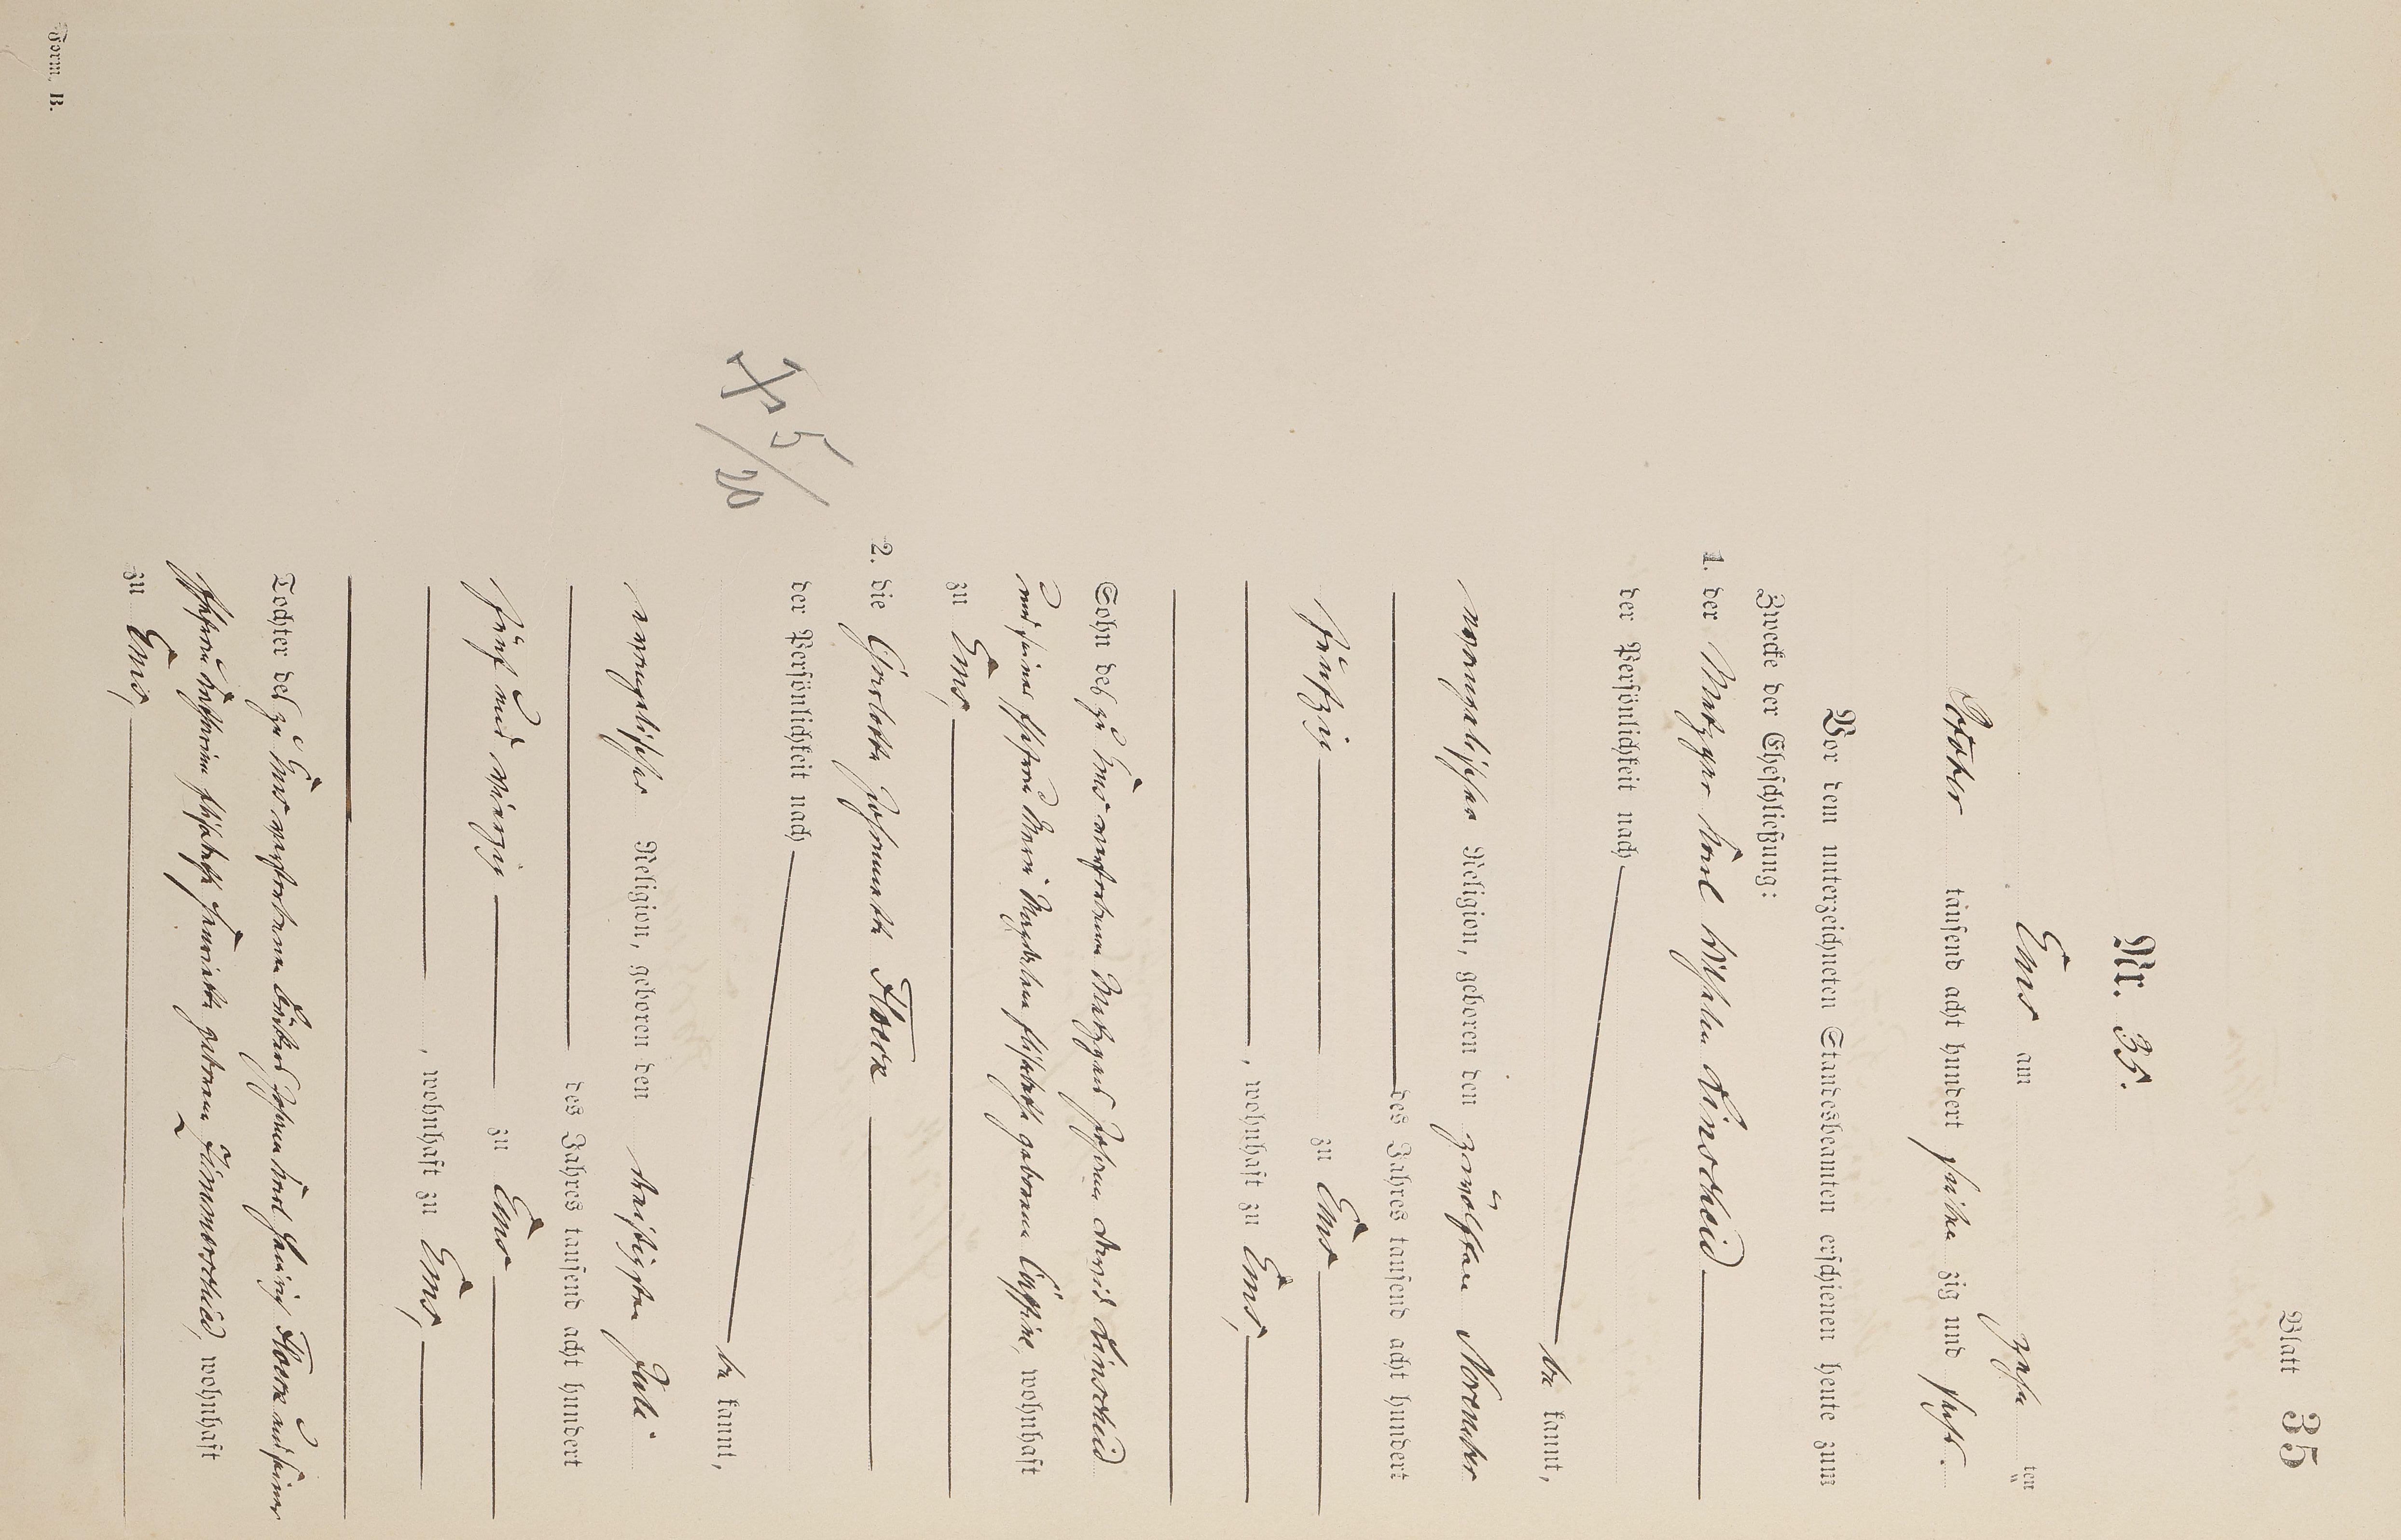 Blatt 35
Nr. 35.
Ems am zehn ten
October tausend acht hundert siebenzig und sechs.
Vor dem unterzeichneten Standesbeamten erschienen heute zum
Zwecke der Eheschließung:
1. der Metzger Karl Wilhelm Linscheid
der Persönlichkeit nach
be kannt,
evangelischer Religion, geboren den zwölften November
des Jahres tausend acht hundert
fünfzig zu Ems
, wohnhaft zu Ems,
Sohn des zu Ems verstorbenen Metzgers Johann David Linscheid
und seiner Ehefrau Maria Magdalena Elisabeth geborene, wohnhaft
zu Ems,
2. die Charlotte Johannette Flöck
der Persönlichkeit nach
be kannt,
evangelischer Religion, geboren den dreißigsten Juli
des Jahres tausend acht hundert
fünf und vierzig zu Ems
, wohnhaft zu Ems,
Tochter des zu Ems verstorbenen Johann Karl Heinrich und seiner
Ehefrau Elisabeth Henriette geborene Zimmerschied, wohnhaft
zu Ems,
+ 5/20
Form. B.